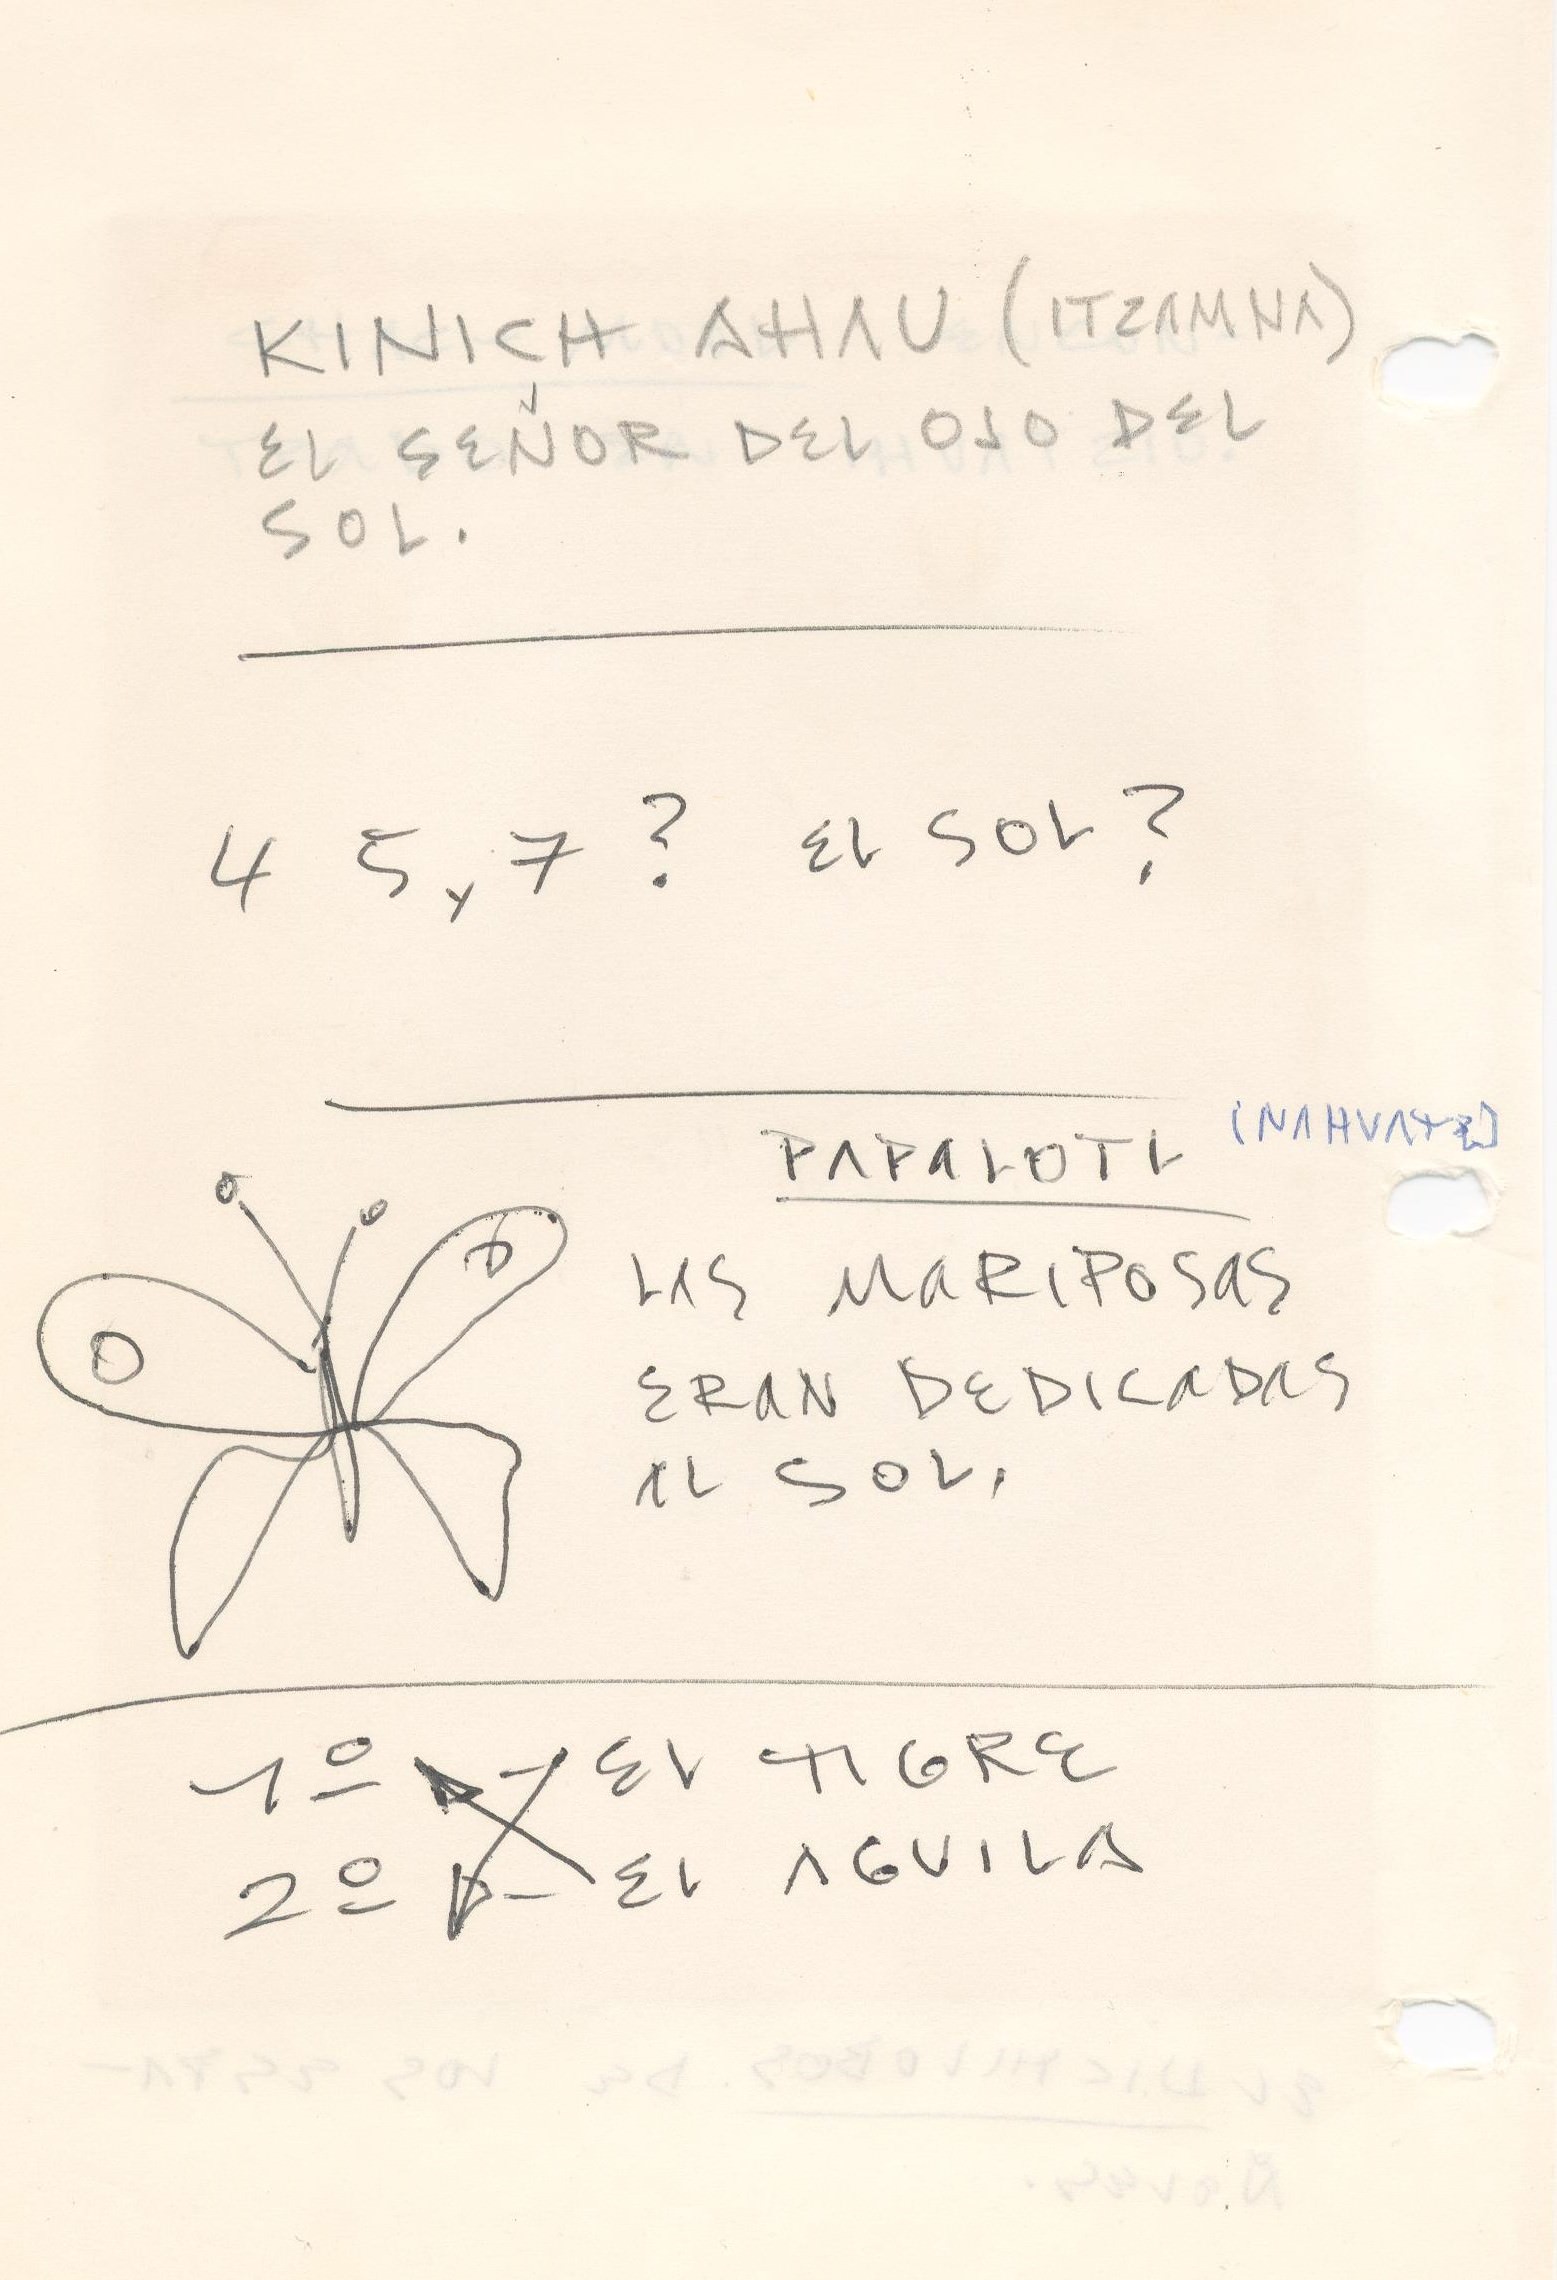 KINICH AHAU (ITZAMNA)
EL SEÑOR DEL OJO DEL
SOL.
4 5, y 7? EL SOL?
PAPALOTL
LAS MARIPOSAS
ERAN DEDICADAS
AL SOL.
1º - EL TIGRE
2º - EL AGUILA